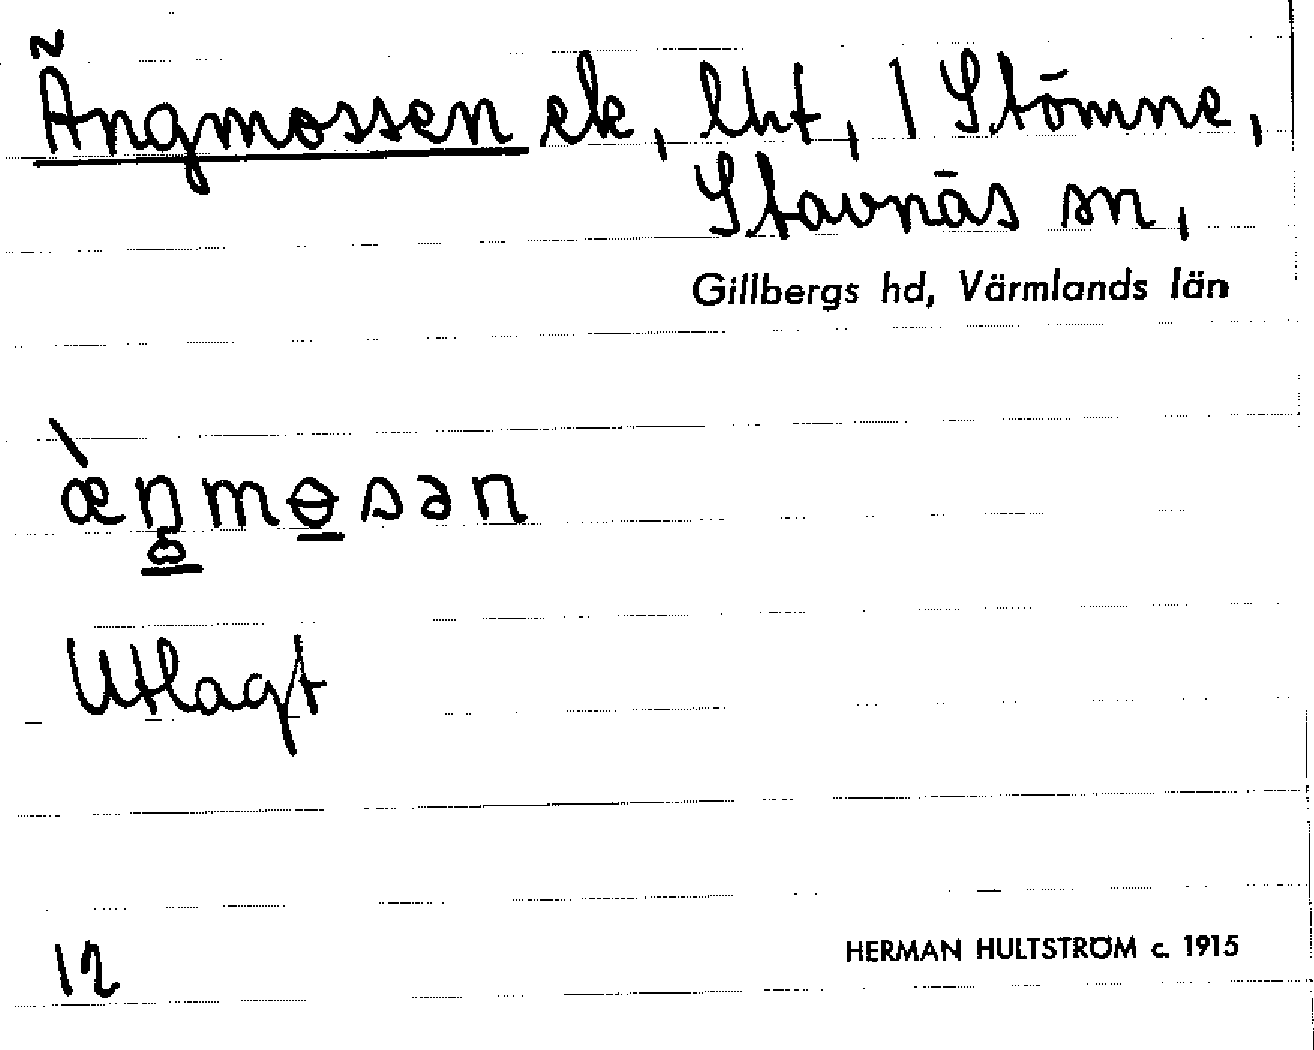 ~
Ängmossen ek, lht, 1 Stömne,
Stavnäs sn,
Gillbergs hd, Värmlands län
Utlagt
12
HERMAN HULTSTRÖM c. 1915